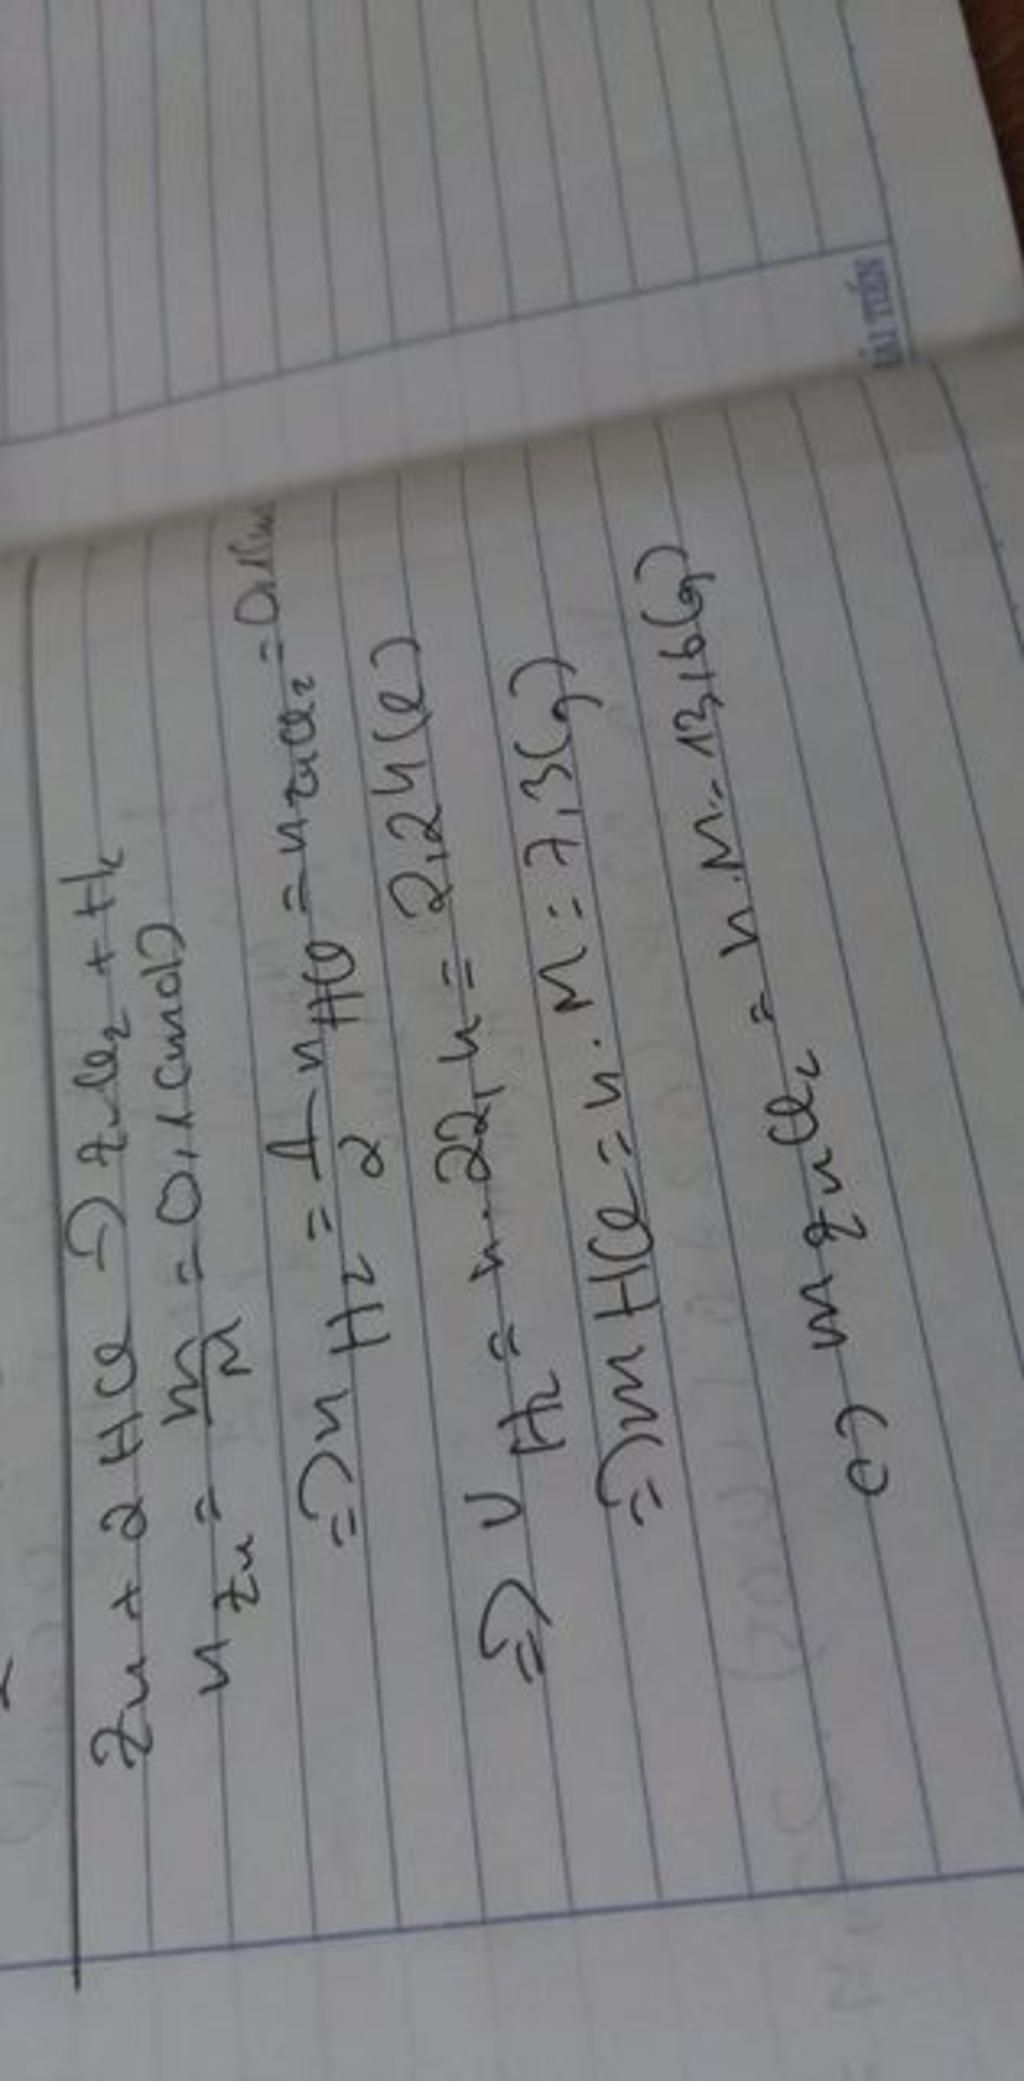 Zn + 2HCl → ZnCl₂ + H₂
n Zn = m/M = 0,1 (mol)
=> n H₂ = 1/2 n HCl = n ZnCl₂ = 0,1 (m
=> V H₂ = n . 22,4 = 2,24 (l)
=> m HCl = n . M = 7,3 (g)
c) m ZnCl₂ = n . M = 13,6 (g)